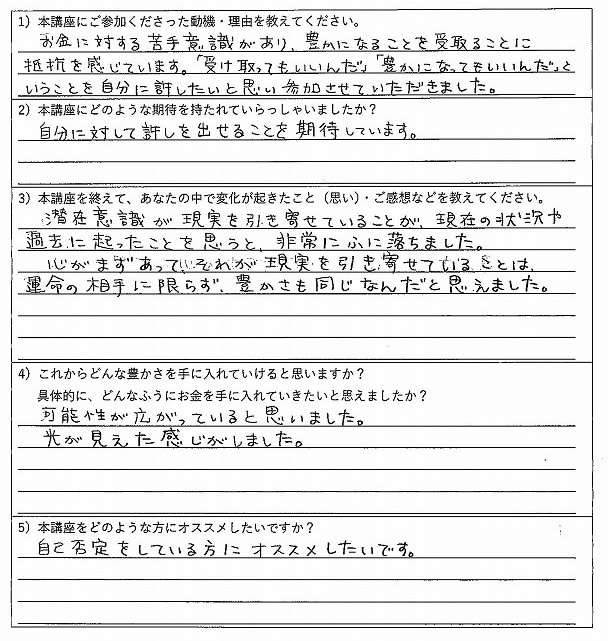 1）本講座にご参加くださった動機・理由を教えてください。
お金に対する苦手意識があり、豊かになることを受取ることに
抵抗を感じています。「受け取ってもいいんだ」「豊かになってもいいんだ」と
いうことを自分に許したいと思い参加させていただきました。
2）本講座にどのような期待を持たれていらっしゃいましたか？
自分に対して許しを出せることを期待しています。
3）本講座を終えて、あなたの中で変化が起きたこと（思い）・ご感想などを教えてください。
潜在意識が現実を引き寄せていることが、現在の状況や
過去に起ったことを思うと、非常にふに落ちました。
心がまずあって、それが現実を引き寄せていることは、
運命の相手に限らず、豊かさも同じなんだと思えました。
4）これからどんな豊かさを手に入れていけると思いますか？
具体的に、どんなふうにお金を手に入れていきたいと思えましたか？
可能性が広がっていると思いました。
光が見えた感じがしました。
5）本講座をどのような方にオススメしたいですか？
自己否定をしている方にオススメしたいです。